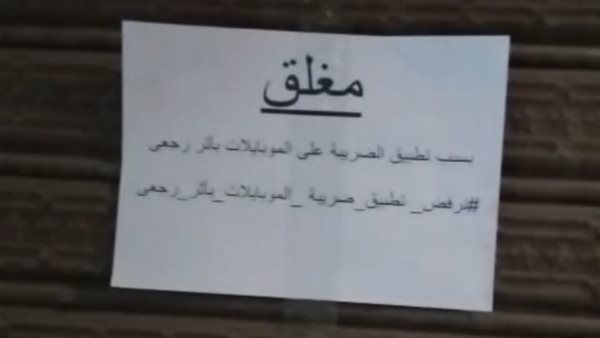 مغلق
بسبب تطبيق الضريبة على الموبايلات بأثر رجعى
#نرفض_ تطبيق_ضريبة _الموبايلات_بأثر_رجعى